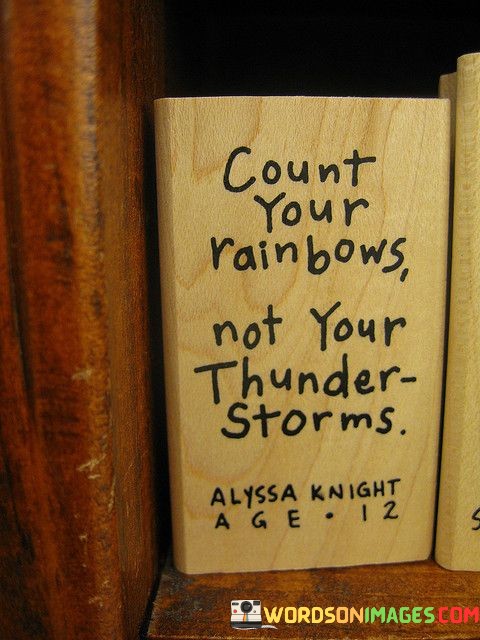 Count
Your
rainbows,
not Your
Thunder-
Storms.
ALYSSA KNIGHT
AGE • 12
WORDSONIMAGES.COM